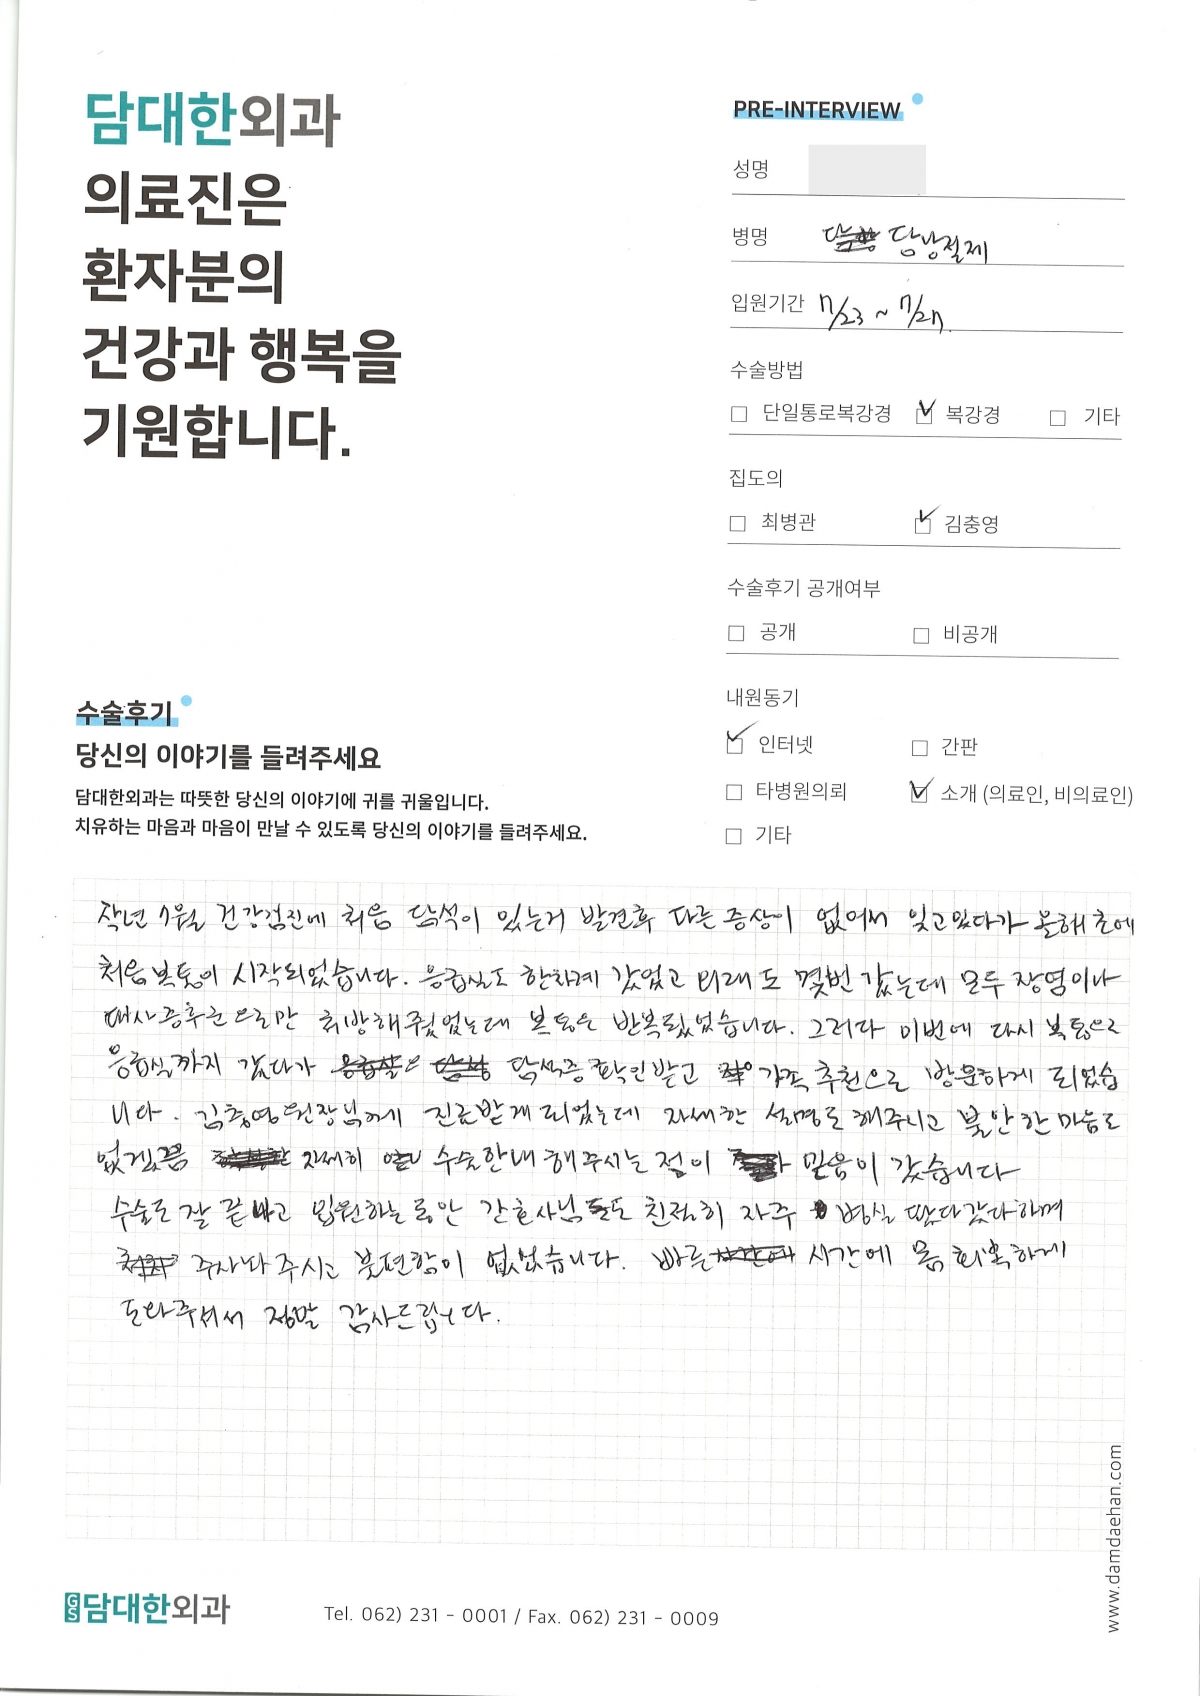 담대한외과
의료진은
환자분의
건강과 행복을
기원합니다.
PRE-INTERVIEW
성명
병명 담낭절제
입원기간 7/23 ~ 7/27.
수술방법
단일통로복강경 복강경 기타
집도의
최병관 김충영
수술후기 공개여부
공개 비공개
내원동기
인터넷 간판
타병원의뢰 소개 (의료인, 비의료인)
기타
수술후기
당신의 이야기를 들려주세요
담대한외과는 따뜻한 당신의 이야기에 귀를 귀울입니다.
치유하는 마음과 마음이 만날 수 있도록 당신의 이야기를 들려주세요.
작년 7월 건강검진에 처음 담석이 있는거 발견후 다른 증상이 없어서 잊고있다가 올해 초에
처음 복통이 시작되었습니다. 응급실도 한차례 갔었고 외래도 몇번 갔는데 모두 장염이나
대사증후군으로만 처방해줬었는데 복통은 반복됐었습니다. 그러다 이번에 다시 복통으로
응급실까지 갔다가 담석증 확인받고 가족 추천으로 방문하게 되었습
니다. 김충영원장님께 진료받게 되었는데 자세한 설명도 해주시고 불안한 마음도
없게끔 자세히 수술안내 해주시는 점이 믿음이 갔습니다
수술도 잘 끝나고 입원하는 동안 간호사님들도 친절히 자주 병실 왔다갔다하며
주사놔주시고 불편함이 없었습니다. 빠른 시간에 몸 회복하게
도와주셔서 정말 감사드립니다.
www.damdaehan.com
GS 담대한외과
Tel. 062) 231 - 0001 / Fax. 062) 231 - 0009